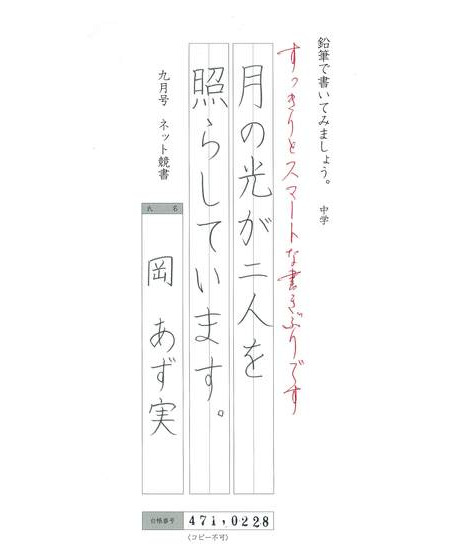 鉛筆で書いてみましょう。 中学
すっきりとスマートな書きぶりです
月の光が二人を
照らしています。
九月号 ネット競書
氏 名
岡 あず実
会帳番号 471,0228
(コピー不可)